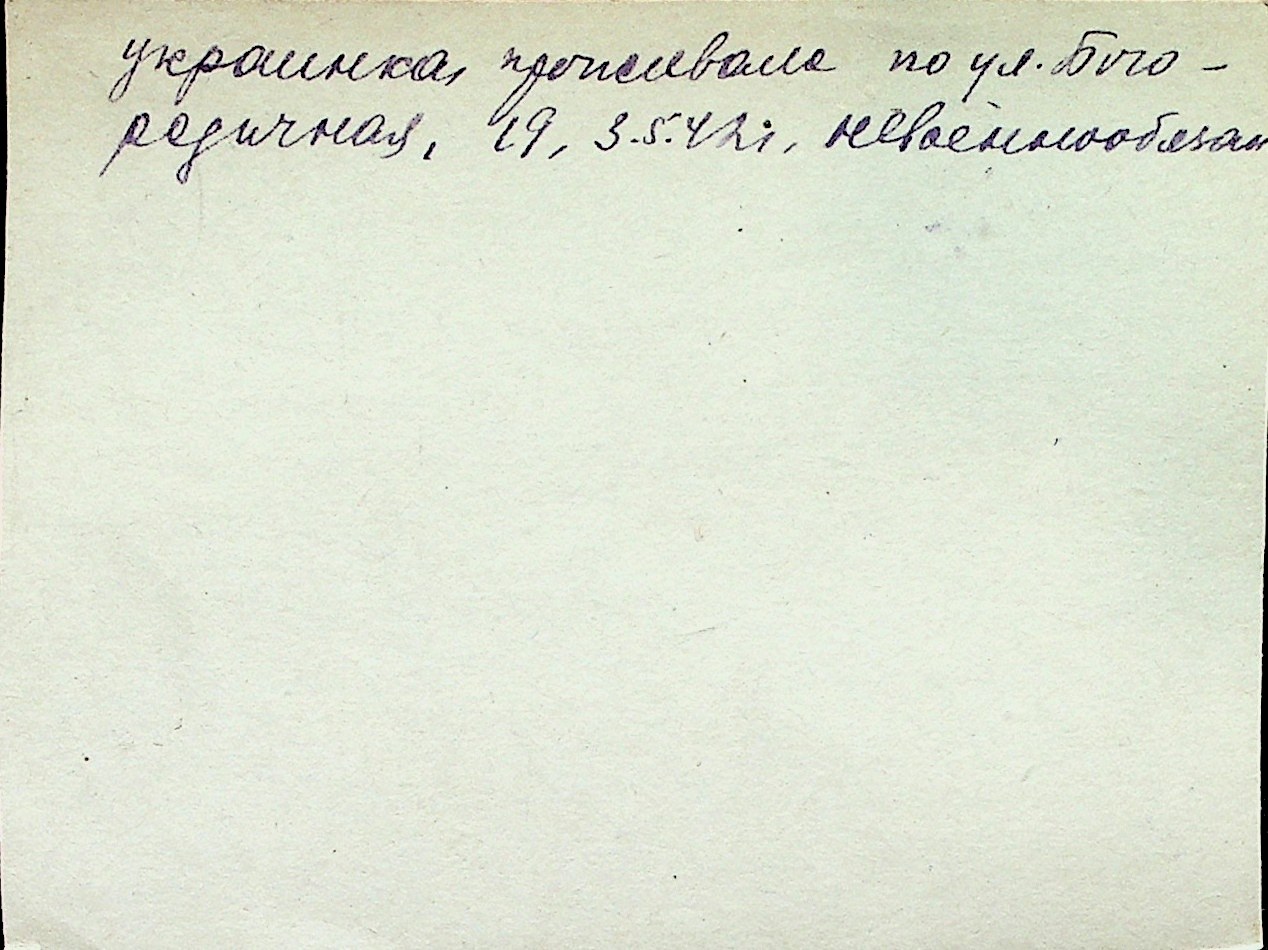 украинка, проживала по ул. Бого-
родичная, 19, 3.5.42г., невоеннообязан